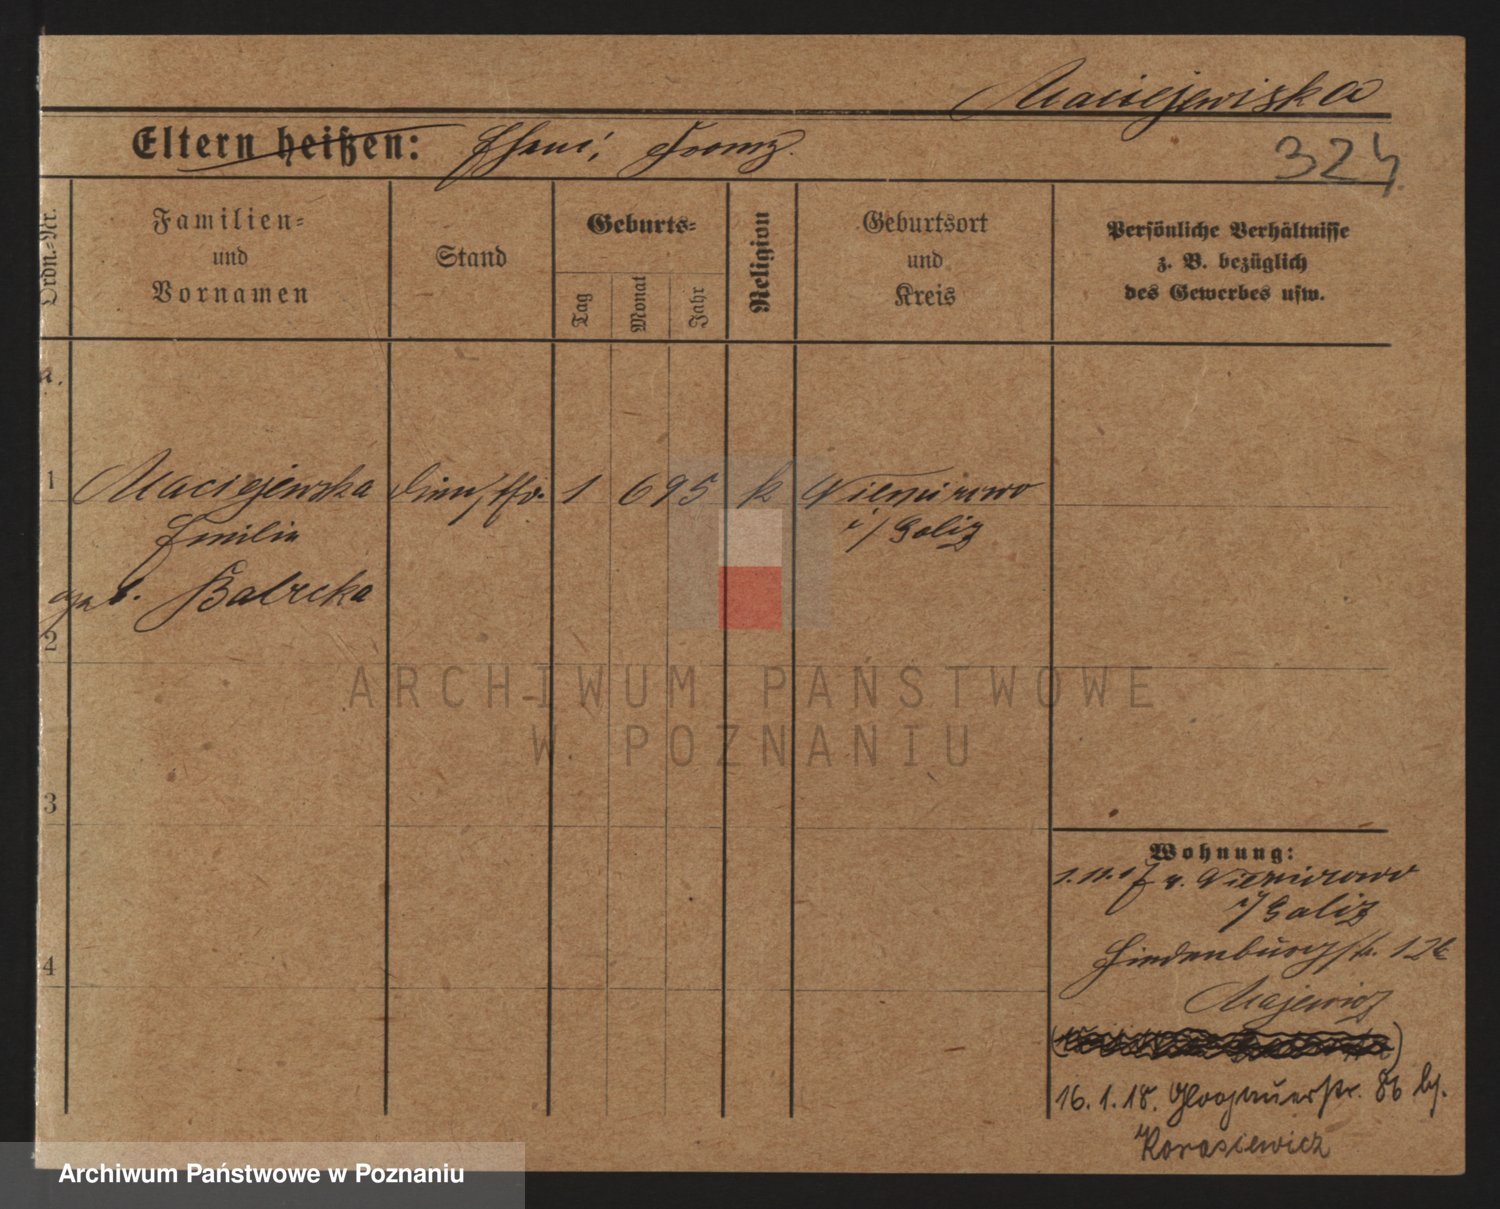 Maciejewska
Eltern heißen: Ehem: Franz.
324
Ordn.-Nr.
Familien-
und
Vornamen
Stand
Geburts-
Tag
Monat
Jahr
Religion
Geburtsort
und
Kreis
Persönliche Verhältnisse
z. B. bezüglich
des Gewerbes usw.
a.
1 Maciejewska 1 6 95 k Niemirowo
Emilia i/Galiz
geb.
2
3
4
Wohnung:
1.11.17 v. Niemirowo
i/Galiz
Hindenburgstr. 12
Majewicz
16.1.18. Glogauerstr. 86 bj.
Korasiewicz
ARCHIWUM PAŃSTWOWE
W POZNANIU
Archiwum Państwowe w Poznaniu